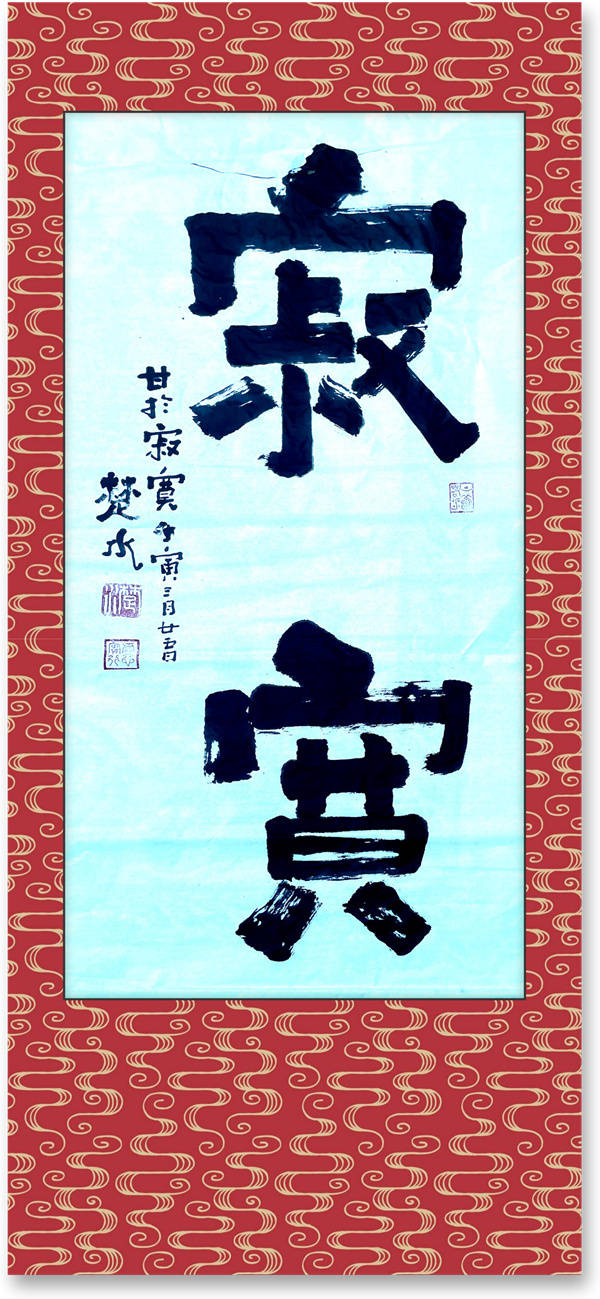 寂寞
甘於寂寞壬寅三月廿日
楚水